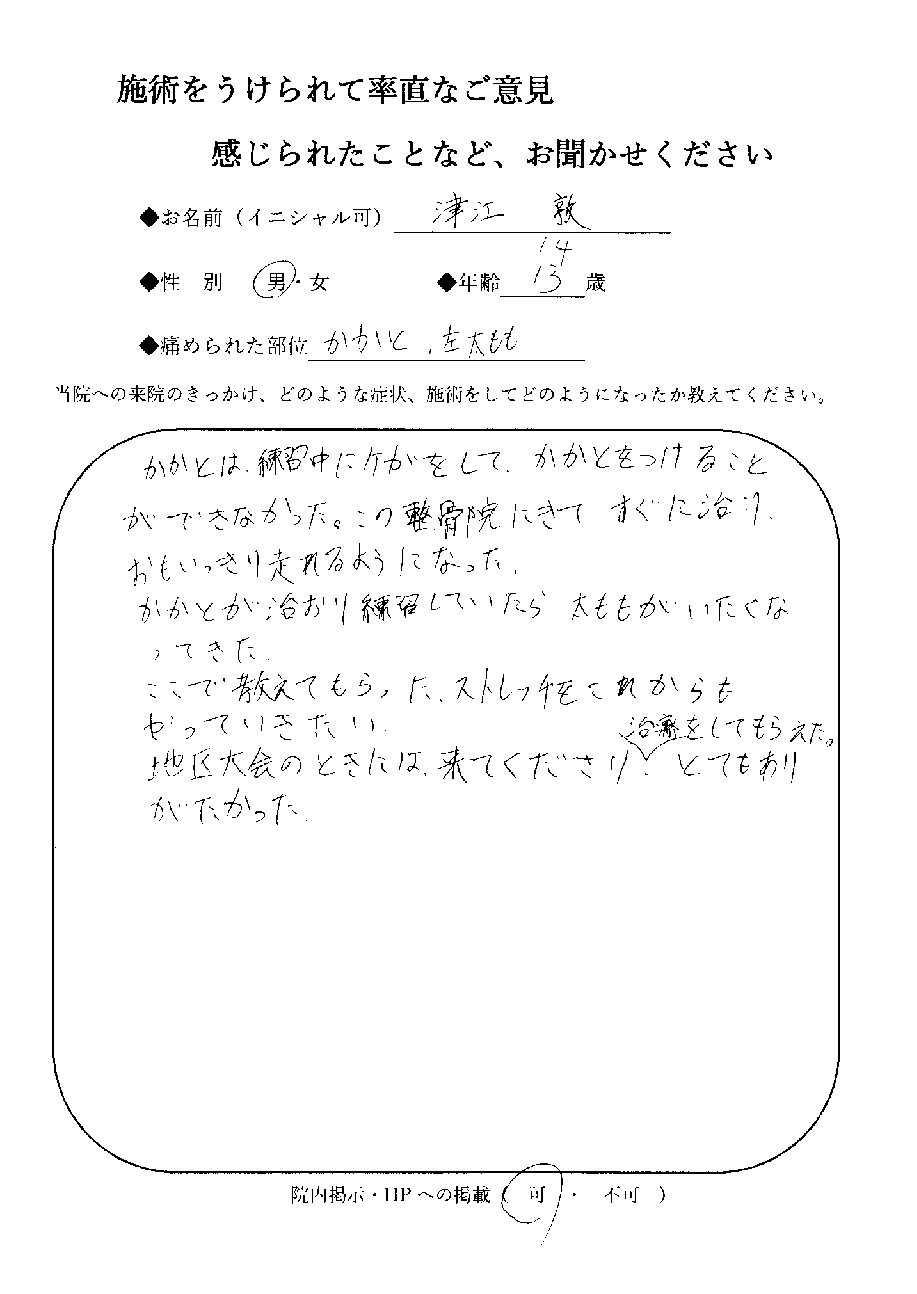 施術をうけられて率直なご意見
感じられたことなど、お聞かせください
◆お名前（イニシャル可） 津江 敦
14
◆性 別 男・女 ◆年齢 13 歳
◆痛められた部位 かかと、左太もも
当院への来院のきっかけ、どのような症状、施術をしてどのようになったか教えてください。
かかとは、練習中にケガをして、かかとをつけること
ができなかった。この整骨院にきてすぐに治り、
おもいっきり走れるようになった。
かかとが治おり練習していたら太ももがいたくな
ってきた。
ここで教えてもらった、ストレッチをこれからも
やっていきたい。
治療をしてもらえた。
地区大会のときには、来てくださり、とてもあり
がたかった。
院内掲示・HPへの掲載（ 可 ・ 不可 ）